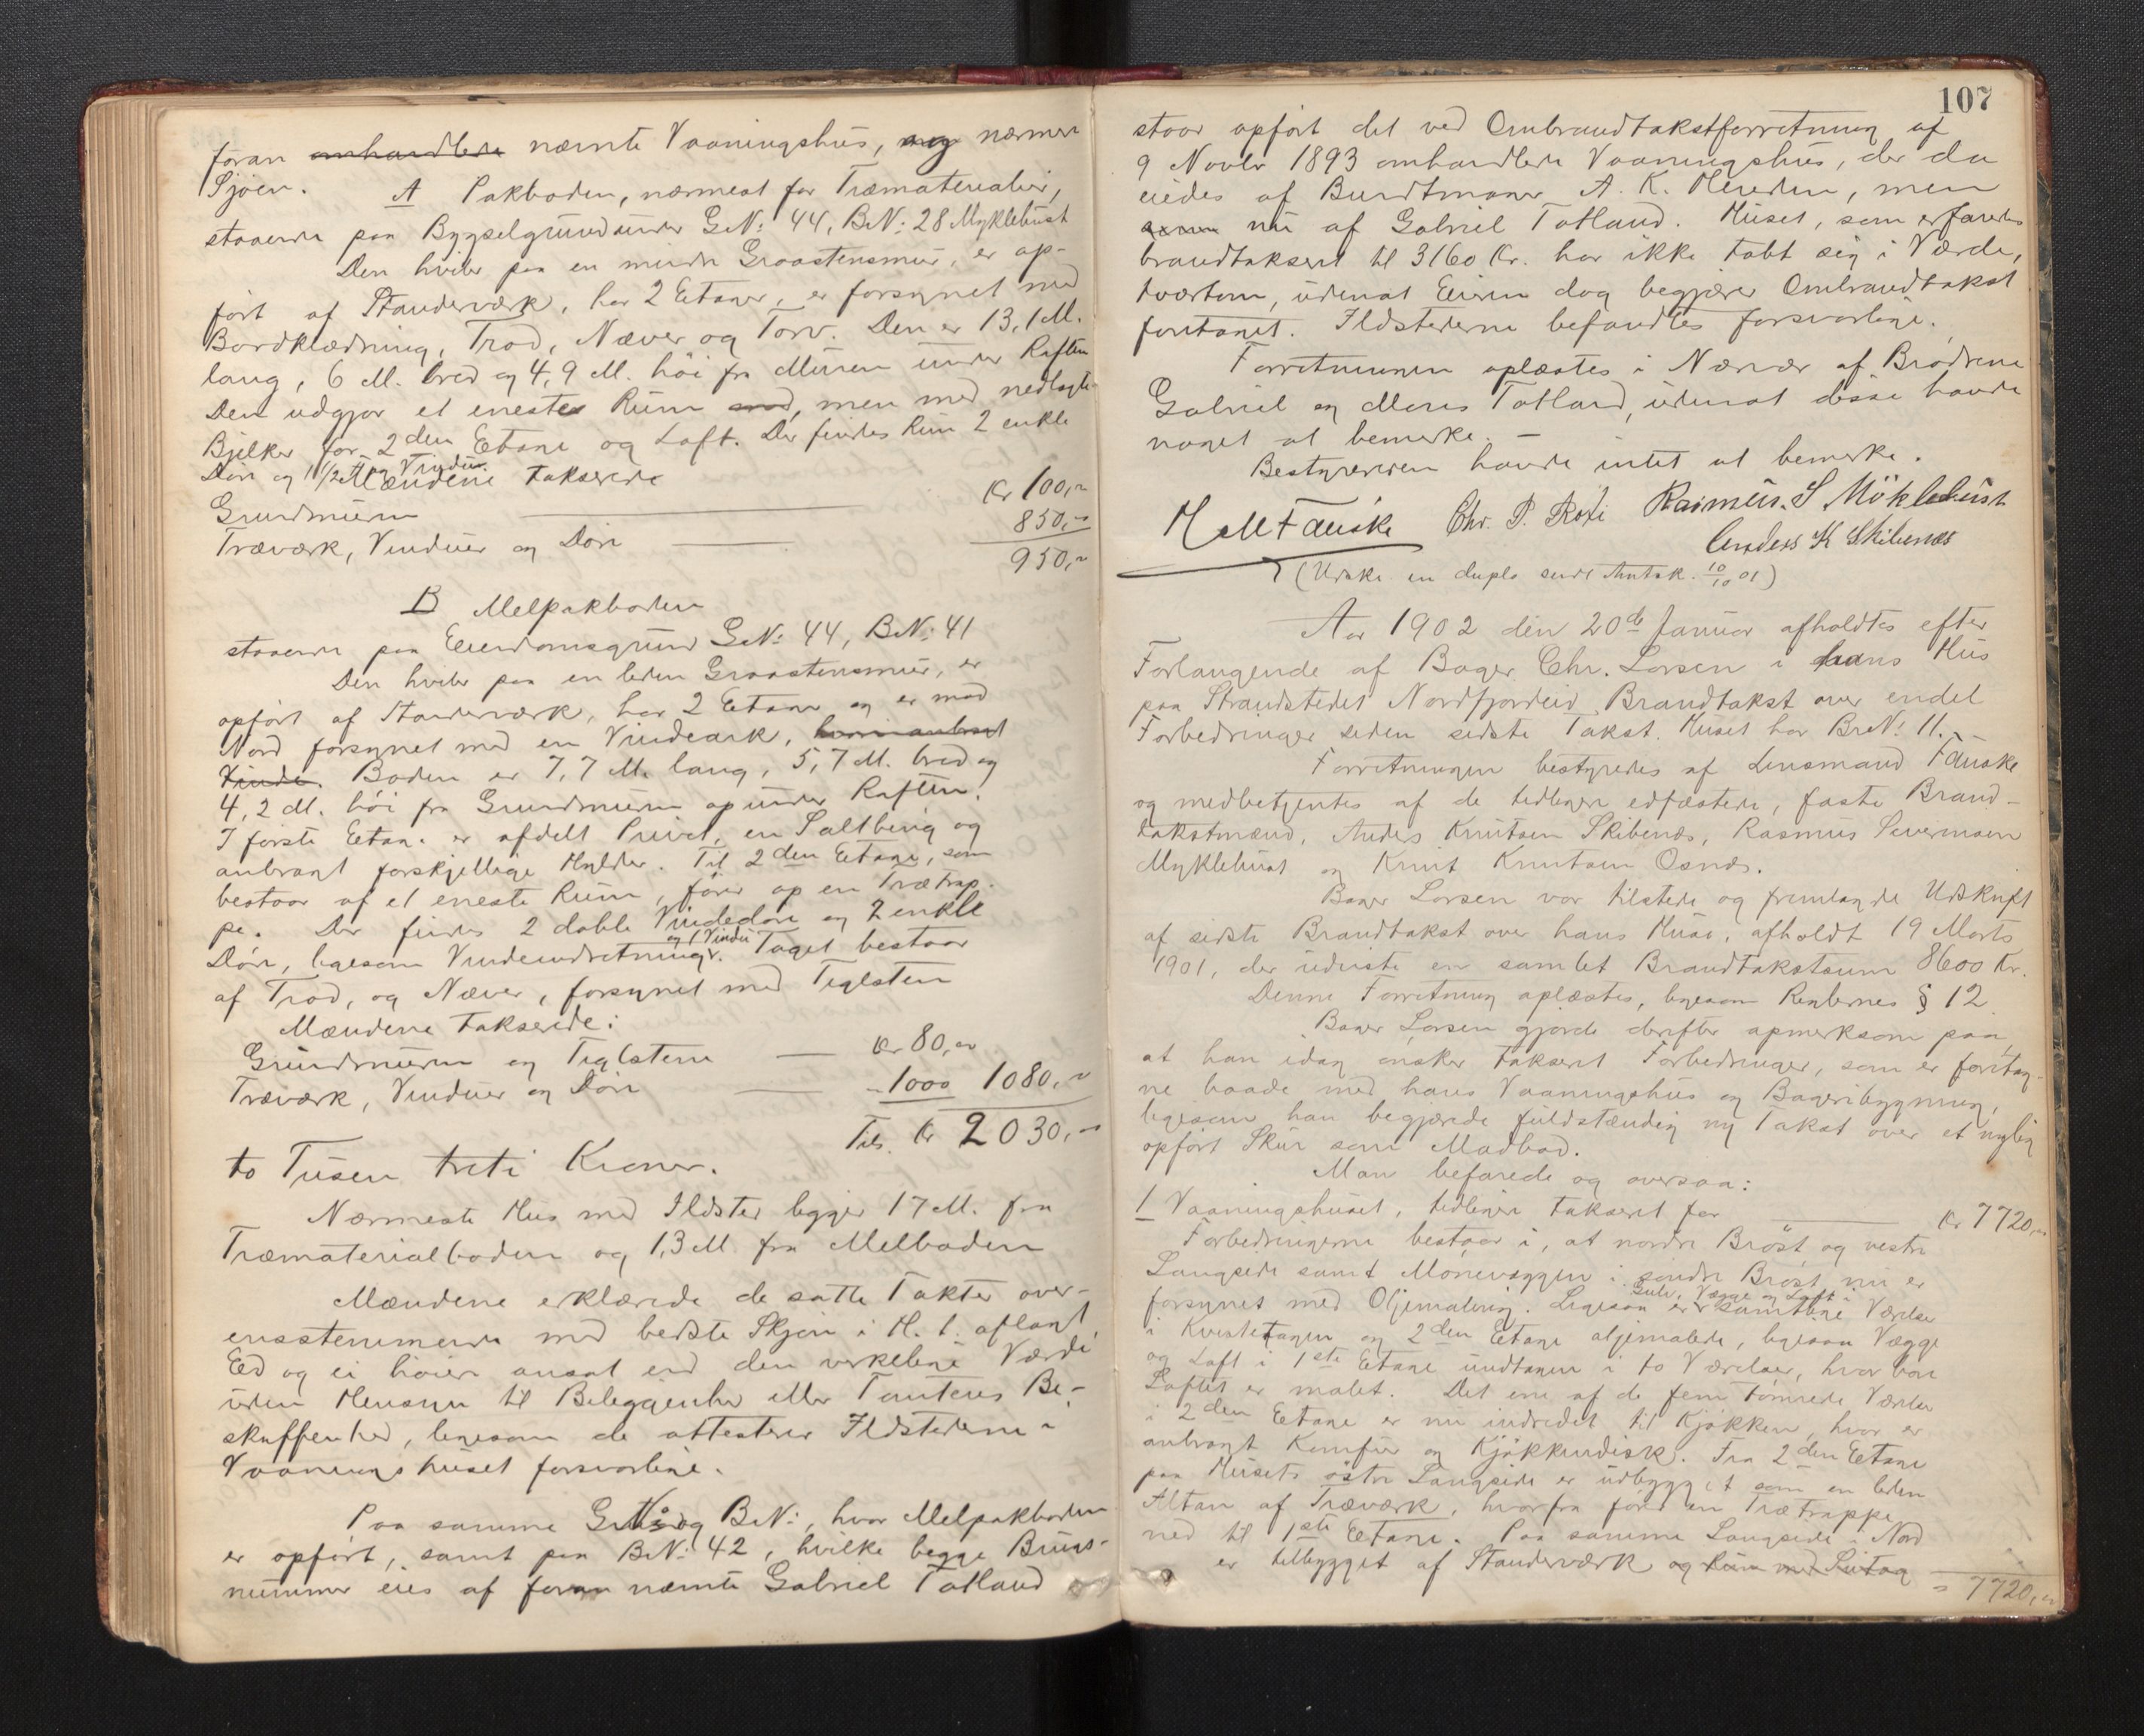 foran omhandlede nævnte Vaaningshus, og nærmere
Sjøen. A Pakboden, nærmest for Træmaterialier,
staaende paa Bygselgrund under G.No: 44, B.No: 28 Myklebust
Den hviler paa en mindre Graastensmur, er op-
ført af Standerværk, har 2 Etager, er forsynet med
Bordklædning, Trod, Næver og Torv. Den er 13,1 M.
lang, 6 M. bred og 4,9 M. høi fra Muren under Raften
Den udgjør et eneste Rum med, men med nedlagte
Bjelker for 2den Etage og Loft. Der findes kun 2 enkle
Døre og 1 1/2 Fag Vindu.
Mændene takserede
Grundmuren Kr 100,-
Træværk, Vinduer og Døre 850,-
950,-
B Melpakboden
staaende paa Eiendomsgrund G.No: 44, B.No: 41
Den hviler paa en liden Graastensmur, er
opført af Standerværk, har 2 Etager og er mod
Nord forsynet med en Vindeark, hvori anbragt
Vinde. Boden er 7,7 M. lang, 5,7 M. bred og
4,2 M. høi fra Grundmuren op under Raften.
I første Etage er afdelt Privet, en Saltbing og
anbragt forskjellige Hylder. Til 2den Etage, som
bestaar af et eneste Rum, fører op en Trætrap-
pe. Der findes 2 doble Vindedøre og 2 enkle
Døre, ligesom Vindeindretning og 1 Vindu. Taget bestaar
af Trod, og Næver, forsynet med Teglsten
Mændene takserede:
Grundmuren og Teglstene Kr 80,-
Træværk, Vinduer og Døre - 1000 1080,-
Tils. Kr 2030,-
to Tusen treti Kroner.
Nærmeste Hus med Ildsted ligger 17 M. fra
Træmaterialboden og 1,3 M fra Melboden
Mændene erklærede de satte Takter over-
ensstemmende med bedste Skjøn i H. t. aflagt
Eed og ei høiere ansat end den virkelige Værdi
uden Hensyn til Beliggenhed eller Tomtens Be-
skaffenhed, ligesom de attesterer Ildstederne i
Vaaningshuset forsvarlige.
Paa samme G.No: og B.No:, hvor Melpakboden
er opført, samt paa B.No: 42, hvilke begge Brugs-
nummer eies af foran nævnte Gabriel Totland
107
staar opført det ved Ombrandtakstforretning af
9 Novbr 1893 omhandlede Vaaningshus, der da
eiedes af Bundtmager A. K. Hereden, men
som nu af Gabriel Totland. Huset, som er
brandtaksert til 3160 Kr. har ikke tabt sig i Værde,
tvertom, udenat Eieren dog begjærer Ombrandtakst
foretaget. Ildstederne befandtes forsvarlige.
Forretningen oplæstes i Nærvær af Brødrene
Gabriel og Mons Totland, udenat disse havde
noget at bemerke. -
Bestyreren havde intet at bemerke.
H M Fauske Chr. P. Roti Rasmus. S Möklebust
Anders K Skibenæs
(Udskr. en duplo sendt Amtsk. 10/10 01)
Aar 1902 den 20de Januar afholdtes efter
Forlangende af Bager Chr. Larsen i hans Hus
paa Strandstedet Nordfjordeid Brandtakst over endel
Forbedringer siden sidste Takst. Huset har BrNo: 11.
Forretningen bestyredes af Lensmand Fauske
og medbetjentes af de tidligere edfæstede, faste Brand-
takstmænd, Anders Knutsen Skibenæs, Rasmus Severinsen
Myklebust og Knut Knutsen Osnæs.
Bager Larsen var tilstede og fremlagde Udskrift
af sidste Brandtakst over hans Huse, afholdt 19 Marts
1901, der udviste en samlet Brandtakstsum 8600 Kr.
Denne Forretning oplæstes, ligesom Reglernes § 12
Bager Larsen gjorde derefter opmerksom paa,
at han idag ønsker taksert Forbedringer, som er foretag-
ne baade med hans Vaaningshus og Bageribygning,
ligesom han begjærede fuldstændig ny Takst over et nylig
opført Skur som Madbod.
Man befarede og oversaa:
1 Vaaningshuset, tidligere taksert for Kr 7720,-
Forbedringerne bestaar i, at nordre Brøst og vestre
Langside samt Mønevæggen i søndre Brøst nu er
forsynet med Oljemaling. Ligesaa er Gulv, Vægge og Loft samtlige Værelser
i Kvistetagen og 2den Etage oljemalede, ligesaa Vægge
og Loft i 1ste Etage undtagen i to Værelser, hvor bare
Loftet er malet. Det ene af de fem tømrede Værelser
i 2den Etage er nu indredet til Kjøkken, hvor er
anbragt Komfur og Kjøkkendisk. Fra 2den Etage
paa Husets østre Langside er udbygget som en liden
Altan af Træværk, hvorfra fører en Trætrappe
ned til 1ste Etage. Paa samme Langside i Nord
er tilbygget af Standerværk og
- 7720,-